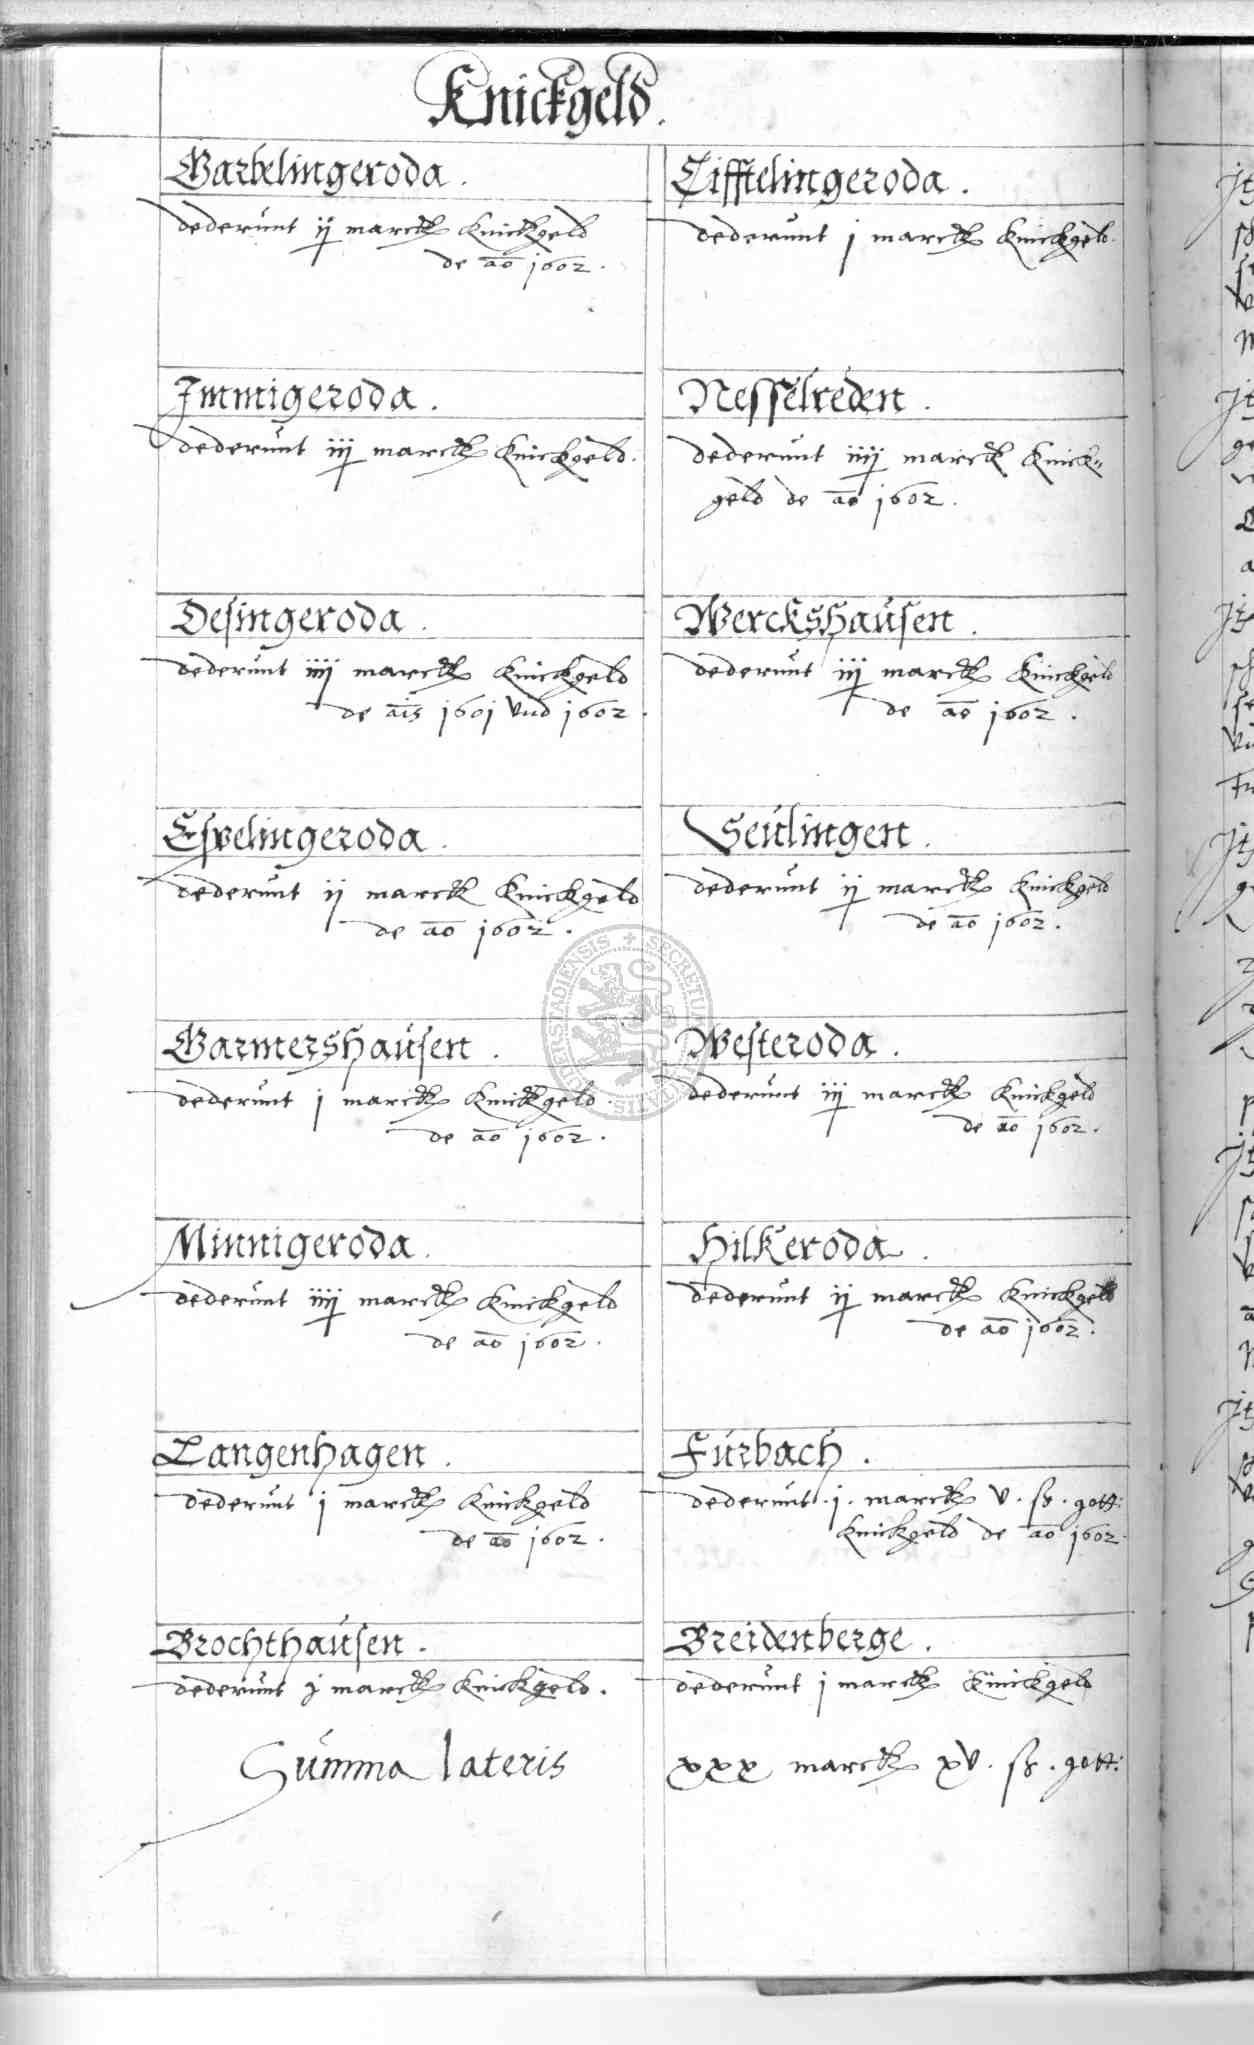 Knickgeld.
Garbelingeroda.
dederunt ij marck Knickgeld
de ao 1602.
Immigeroda.
dederunt iij marck Knickgeld.
Desingeroda.
dederunt iiij marck Knickgeld
de ais 1601 vnd 1602.
Espelingeroda.
dederunt ij marck Knickgeld
de ao 1602.
Garmershausen.
dederunt j marck Knickgeld.
de ao 1602.
Minnigeroda.
dederunt iiij marck Knickgeld
de ao 1602.
Langenhagen.
dederunt j marck Knickgeld
de ao 1602.
Brochthausen.
dederunt j marck Knickgeld.
Tifftelingeroda.
dederunt j marck Knickgeld.
Nesselreden.
dederunt iiij marck Knick„
geld de ao 1602.
Werckshausen.
dederunt iij marck Knickgeld
de ao 1602.
Seulingen.
dederunt ij marck Knickgeld
de ao 1602.
Westeroda.
dederunt iij marck Knickgeld
de ao 1602.
Hilkeroda.
dederunt ij marck Knickgeld
de ao 1602.
Furbach.
dederunt .j. marck v. ß. gott:
Knickgeld de ao 1602.
Breidenberge.
dederunt j marck Knickgeld
Summa lateris xxx marck xv. ß. gott: